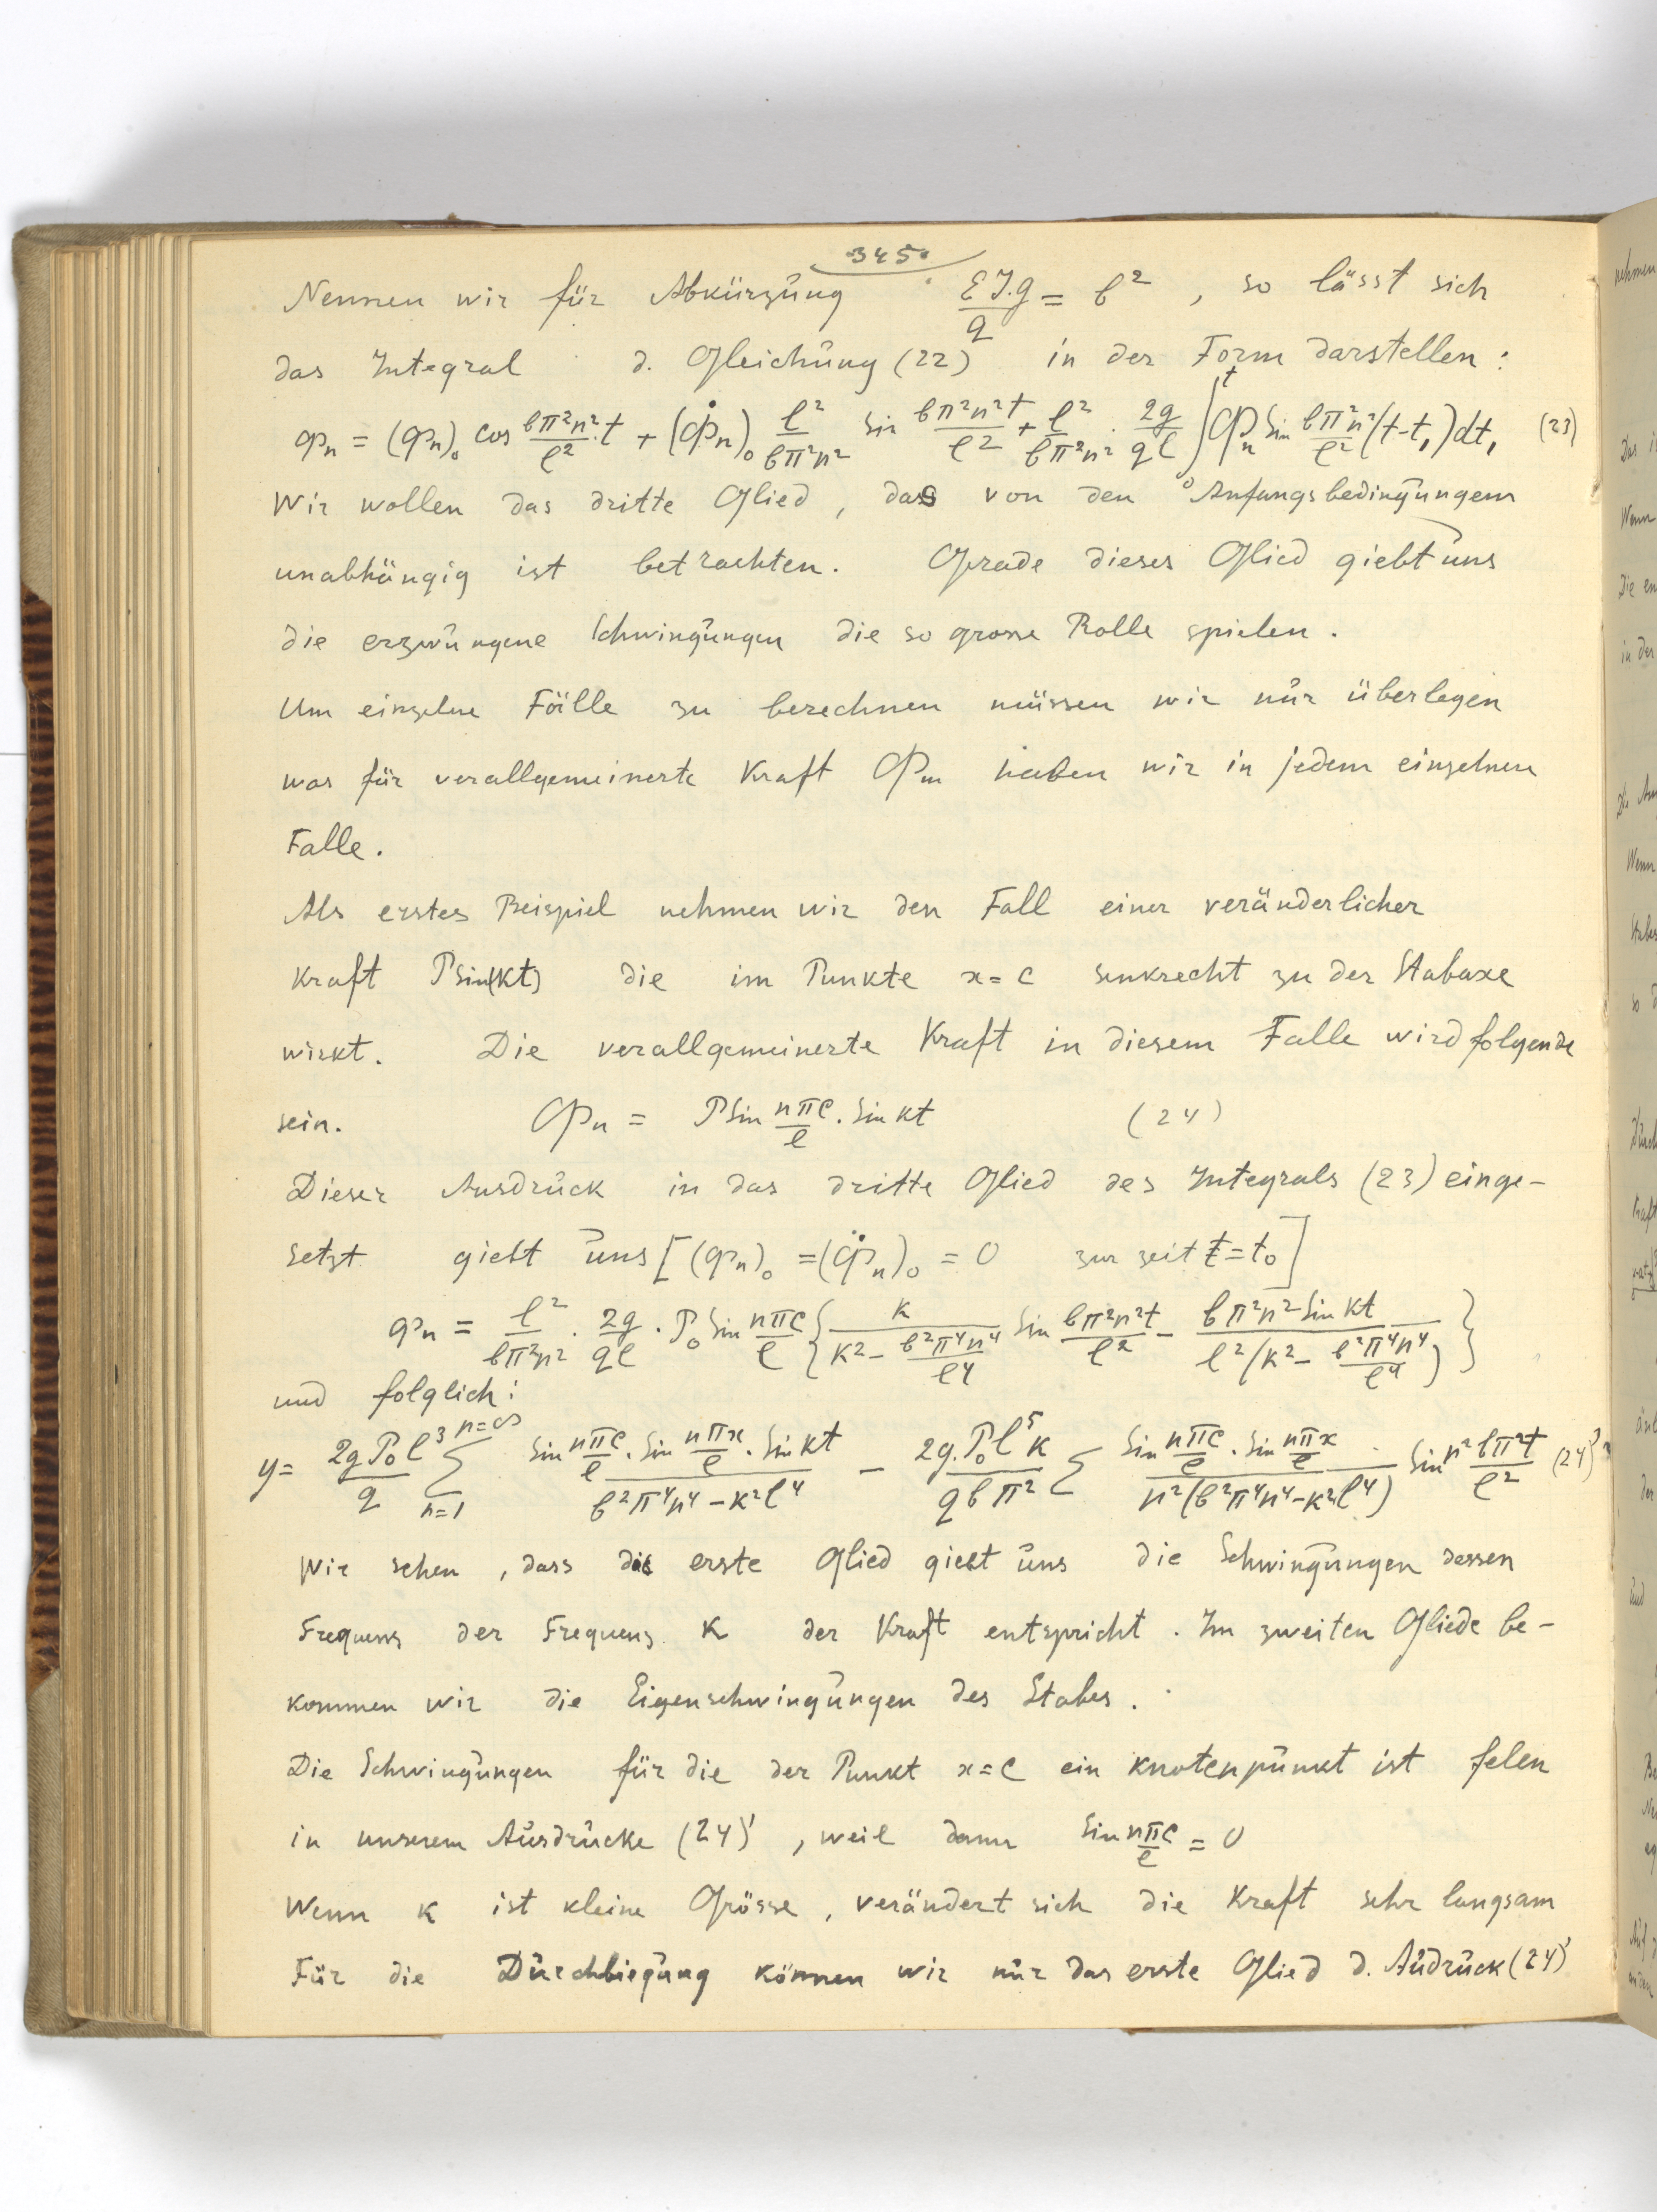 345.
Nennen wir für Abkürzung EJ.g/q = b² , so lässt sich
das Integral d. Gleichung (22) in der Form darstellen :
φₙ = (φₙ)₀ cos bπ²n²/l² . t + (φ̇ₙ)₀ l²/bπ²n² sin bπ²n²t/l² + l²/bπ²n² . 2g/ql ∫₀ᵗ Φₙ Sin bπ²n²/l² (t-t₁)dt₁ (23)
Wir wollen das dritte Glied , das von den Anfangsbedingungen
unabhängig ist betrachten. Grade dieses Glied giebt uns
die erzwungene Schwingungen die so grosse Rolle spielen .
Um einzelne Fälle zu berechnen müssen wir nur überlegen
was für verallgemeinerte Kraft Φₘ haben wir in jedem einzelnen
Falle .
Als erstes Beispiel nehmen wir den Fall einer veränderlicher
Kraft P Sin(kt) die im Punkte x = c senkrecht zu der Stabaxe
wirkt . Die verallgemeinerte Kraft in diesem Falle wird folgende
sein . Φₙ = P Sin nπc/l . Sin kt (24)
Dieser Ausdruck in das dritte Glied des Integrals (23) einge-
setzt giebt uns [ (φₙ)₀ = (φ̇ₙ)₀ = 0 zur zeit t = t₀ ]
φₙ = l²/bπ²n² . 2g/ql . P₀ Sin nπc/l { k/(k² - b²π⁴n⁴/l⁴) Sin bπ²n²t/l² - bπ²n² Sin kt/l²(k² - b²π⁴n⁴/l⁴) }
und folglich :
y = 2gP₀l³/q Σₙ₌₁ⁿ⁼∞ Sin nπc/l . Sin nπx/l . Sin kt/(b²π⁴n⁴ - k²l⁴) - 2g.P₀l⁵k/qbπ² Σ Sin nπc/l . Sin nπx/l/n²(b²π⁴n⁴ - k²l⁴) Sin n²bπ²t/l² (24)'
Wir sehen , dass das erste Glied giebt uns die Schwingungen dessen
Frequenz der Frequenz k der Kraft entspricht . Im zweiten Gliede be-
kommen wir die Eigenschwingungen des Stabes .
Die Schwingungen für die der Punkt x = c ein Knotenpunkt ist felen
in unserem Ausdrucke (24)' , weil dann Sin nπc/l = 0
Wenn k ist kleine Grösse , verändert sich die Kraft sehr langsam
Für die Durchbiegung können wir nur das erste Glied d. Audruck (24)'